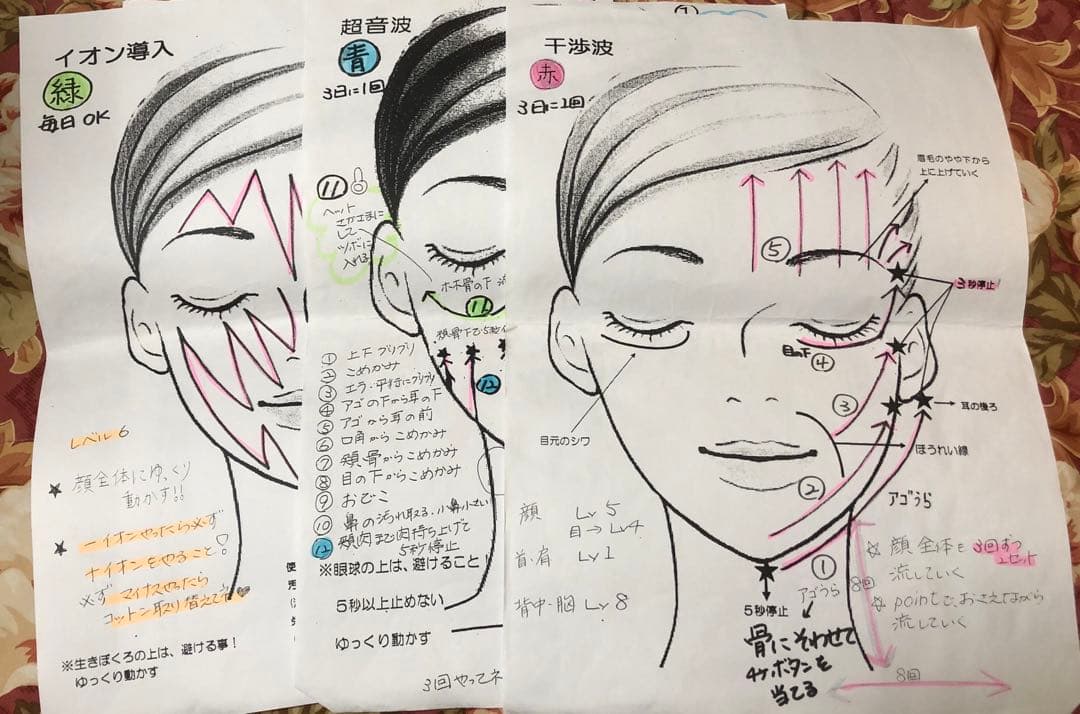 イオン導入
緑
毎日OK
レベル6
★ 顔全体にゆっくり
動かす!!
★ ーイオンやったら必ず
ナイオンをやること!
必ず マイナスやったら
コットン取り替えて
※生きぼくろの上は、避ける事!
ゆっくり動かす
超音波
青
3日に1回
11
ヘッド
さかさまに
して
ツボに
入れる
ホホ骨の下
11
頬骨下で5秒
12
① 上下プリプリ
② こめかみ
③ エラ・平行にプリプリ
④ アゴの下から耳の下
⑤ アゴから耳の前
⑥ 口角からこめかみ
⑦ 頬骨からこめかみ
⑧ 目の下からこめかみ
⑨ おでこ
⑩ 鼻の汚れ取る。小鼻小さい
12 頬肉まで肉持ち上げて
5秒停止
※眼球の上は、避けること!
5秒以上止めない
ゆっくり動かす
3回やってネ
使
干渉波
赤
3日に1回
眉毛のやや下から
上に上げていく
⑤
3秒停止
目の下
④
③
耳の後ろ
目元のシワ
ほうれい線
②
アゴうら
顔 Lv 5
目→Lv4
Lv 1
背中・胸 Lv 8
①
5秒停止
アゴうら
骨にそわせて
ボタンを
当てる
8回
☆ 顔全体を3回ずつ
1セット
流していく
☆ pointでおさえながら
流していく
8回